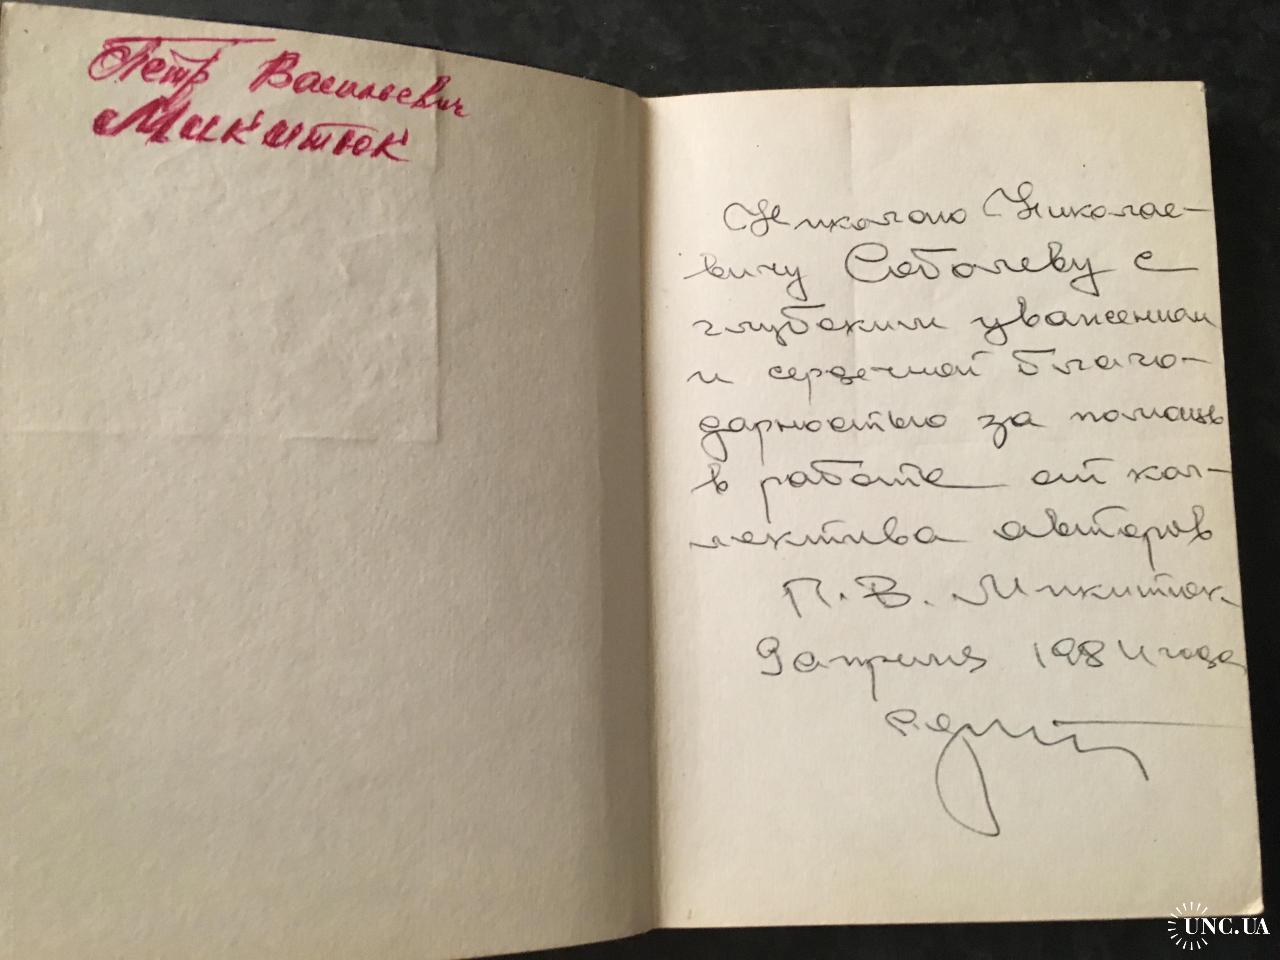 Петр Васильевич
Микитюк
Николаю Николае-
вичу Соболеву с
глубоким уважением
и сердечной благо-
дарностью за помощь
в работе от кол-
лектива авторов
П. В. Микитюк.
9 апреля 1984 года
UNC.UA